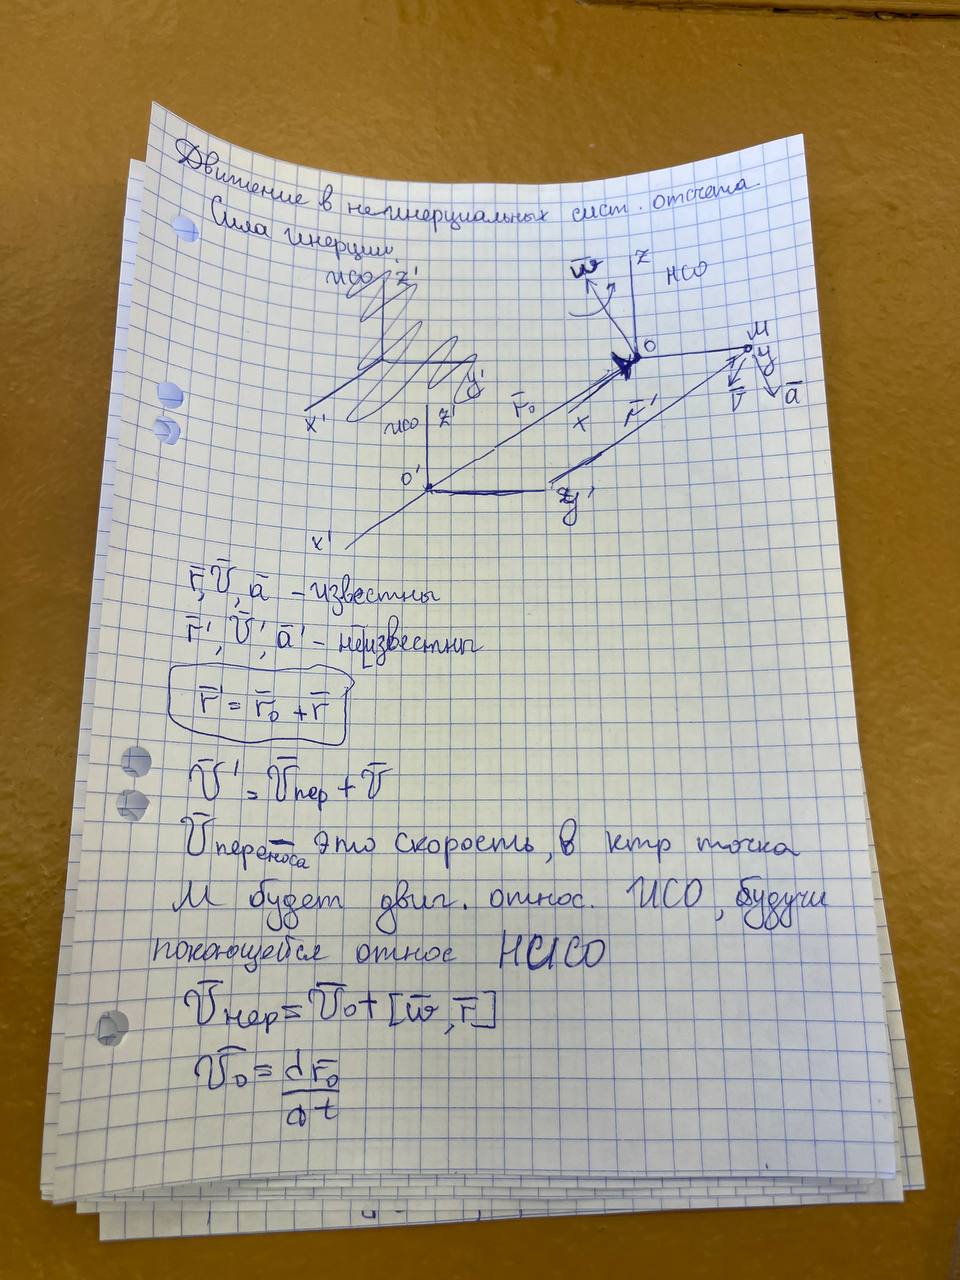 Движение в неинерциальных сист. отсчета
Сила инерции.
ИСО z'
y'
x'
w̄
z
НСО
O
M
y
v̄
ā
r̄₀
x
r̄'
ИСО z'
O'
y'
x'
r̄, v̄, ā - известны
r̄', v̄', ā' - неизвестны
r̄' = r̄₀ + r̄
v̄' = v̄пер + v̄
v̄переноса - это скорость, в ктр точка
М будет двиг. относ. ИСО, будучи
покоющейся относ НИСО
v̄пер = v̄₀ + [w̄, r̄]
v̄₀ = dr̄₀
dt